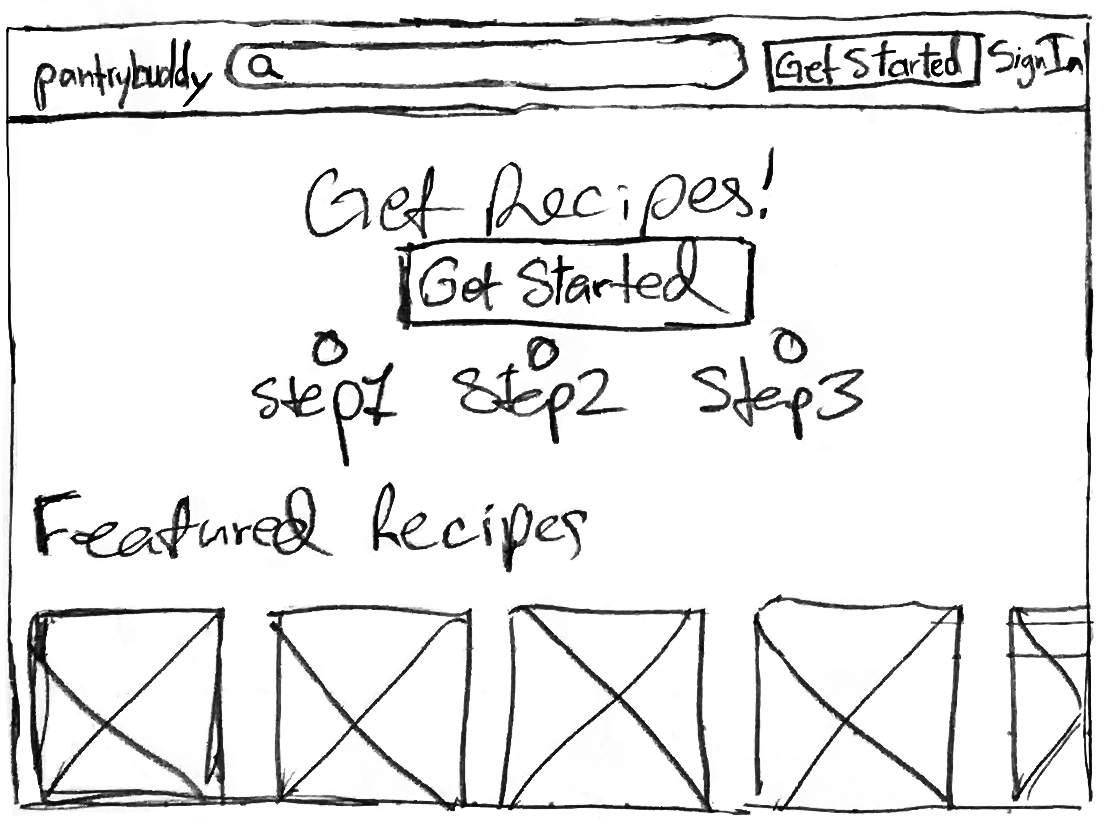 pantrybuddy Get Started Sign In
Get Recipes!
Get Started
Step1 Step2 Step3
Featured Recipes